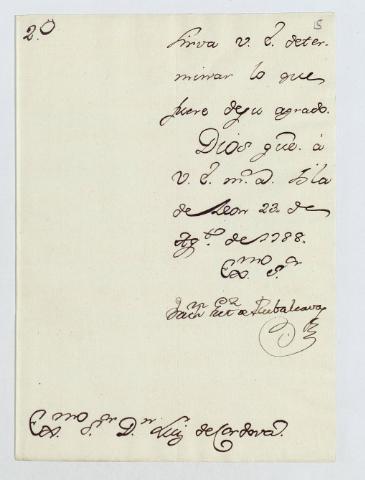 2.º
5
sirva V. E. deter-
minar lo que
fuere de su agrado.
Dios gue. á
V. E. ms. as. Isla
de Leon 23 de
Agto. de 1788.
Exmo. Sr.
Exmo. Sr. Dn. Luis de Cordova.